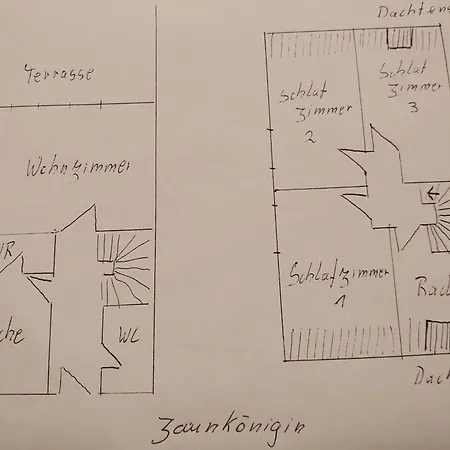 Terrasse
Wohnzimmer
WC
Dachtens
Schlaf
zimmer
2
Schlaf
zimmer
3
Schlafzimmer
1
Bad
Dach
Zaunkönigin